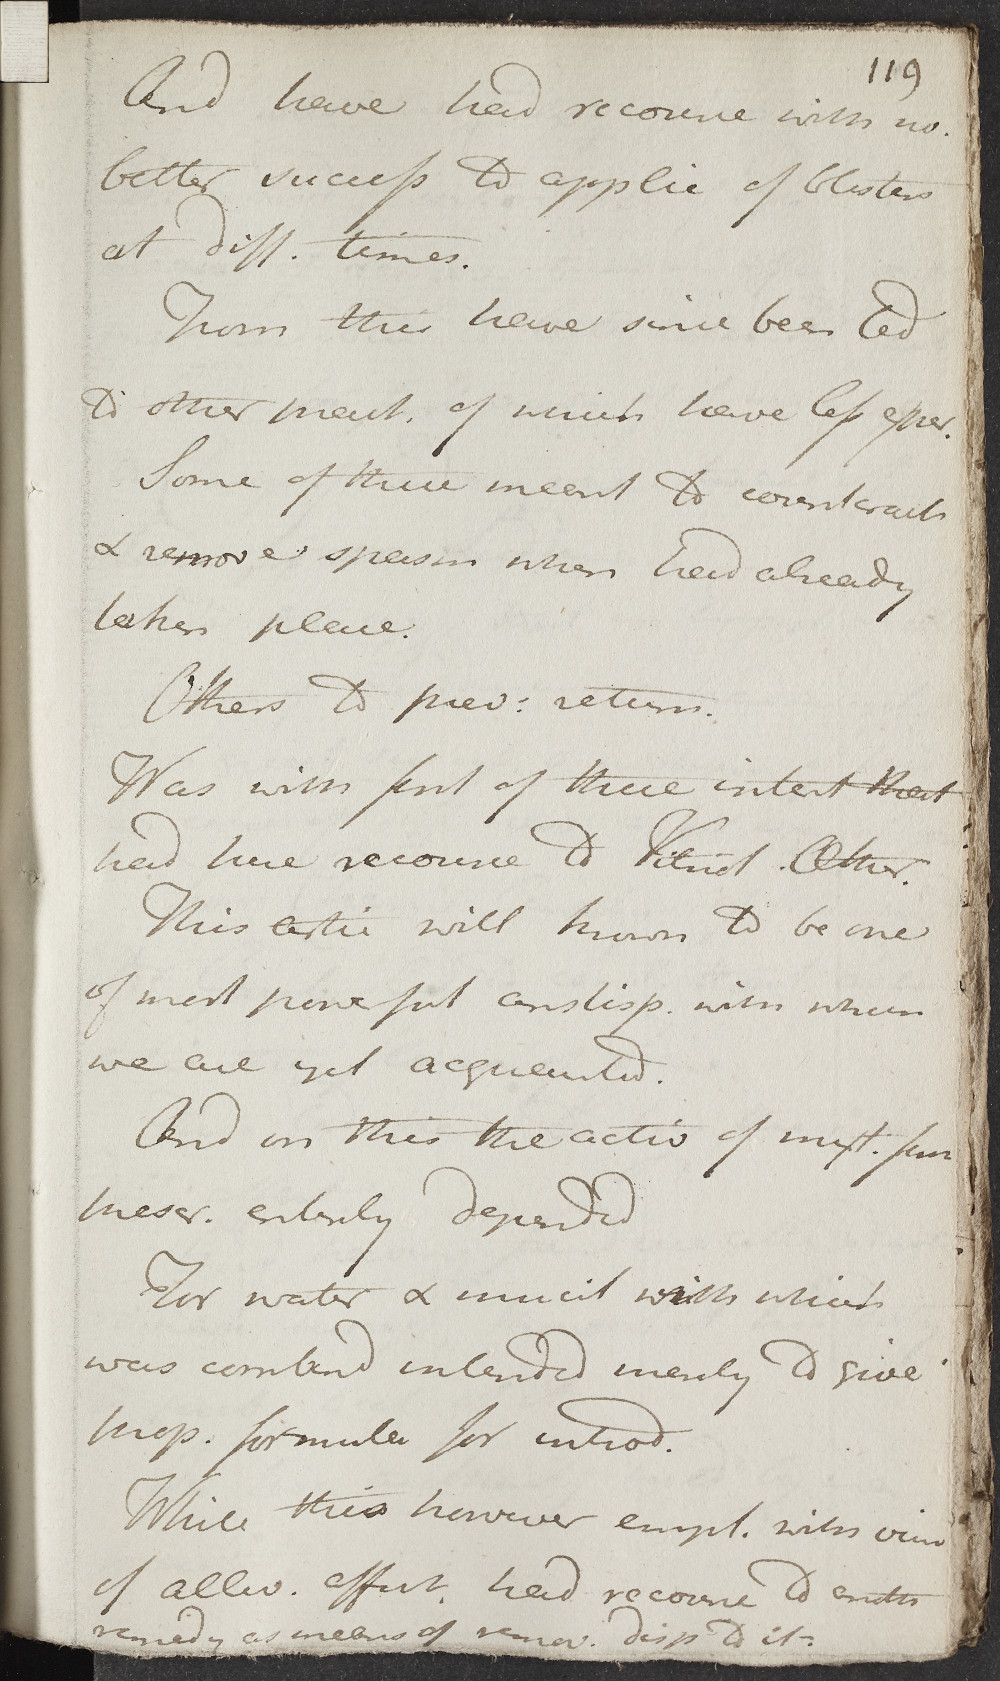 119
And have had recourse with no
better success to applic of blisters
at diff. times.
From this have since been led
to other pract. of which have less exper.
Some of these meant to counteract
& remove spasm when had already
taken place.
Others to prev: return.
Was with first of these intent that
had here recourse to Vitriol. Æther.
This artic will known to be one
of most powerful antisp. with when
we are yet acquainted.
And on this the actio of mixt. first
prescr. entirely depended
For water & mucil with which
was combind intended merely to give
prop. formula for introd.
While this however empl. with view
of allev. affect. had recourse to anoth
remedy as means of remov. disp to it.